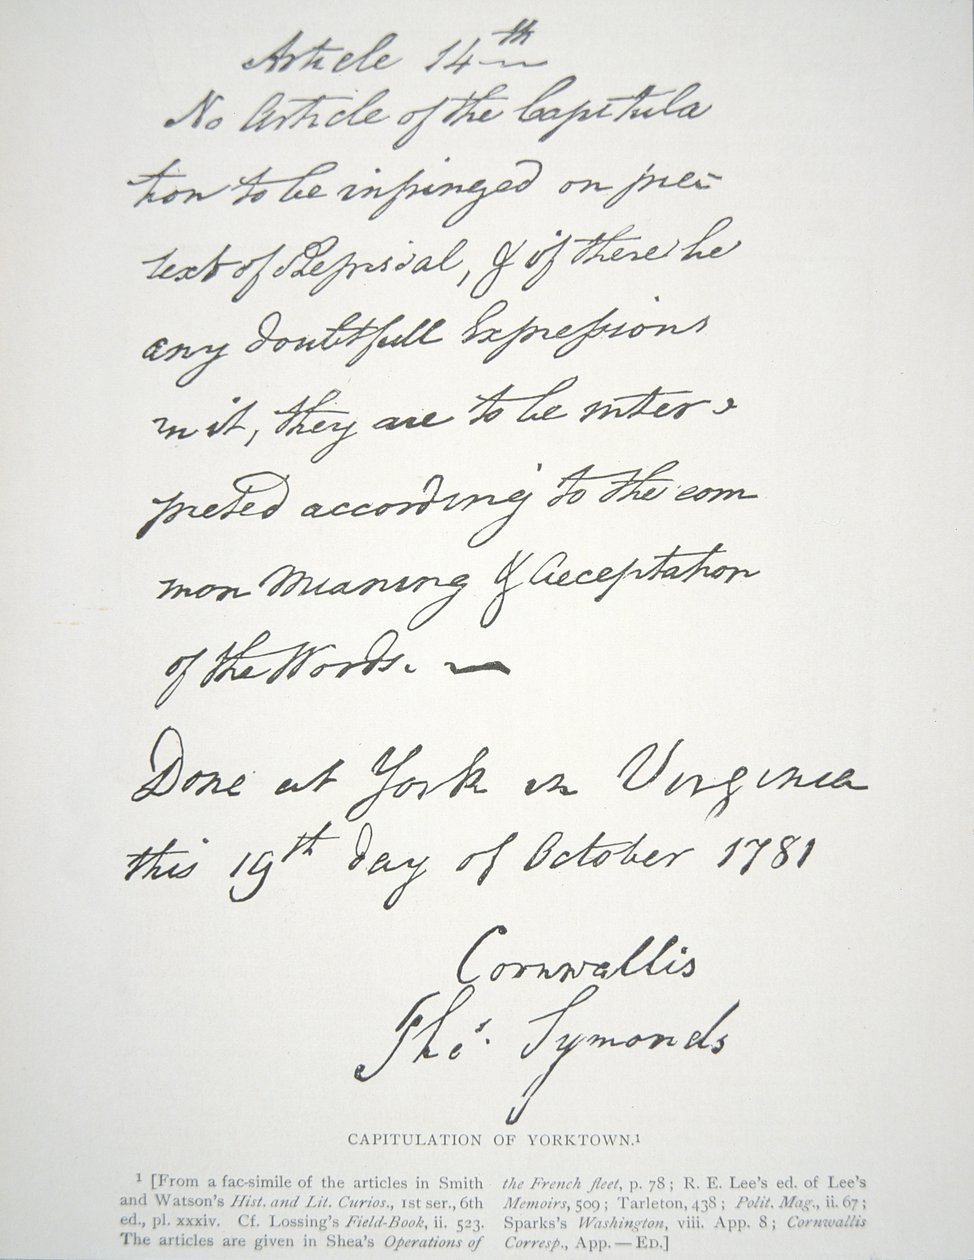 Article 14th
No Article of the Capitula
tion to be infringed on pre-
text of Reprisal, & if there be
any doubtfull Expressions
in it, they are to be inter-
preted according to the com
mon Meaning & Acceptation
of the Words. —
Done at York in Virginia
this 19th day of October 1781
Cornwallis
Thos. Symonds
CAPITULATION OF YORKTOWN.1
1 [From a fac-simile of the articles in Smith
and Watson's Hist. and Lit. Curios., 1st ser., 6th
ed., pl. xxxiv. Cf. Lossing's Field-Book, ii. 523.
The articles are given in Shea's Operations of
the French fleet, p. 78; R. E. Lee's ed. of Lee's
Memoirs, 509; Tarleton, 438; Polit. Mag., ii. 67;
Sparks's Washington, viii. App. 8; Cornwallis
Corresp., App. — ED.]